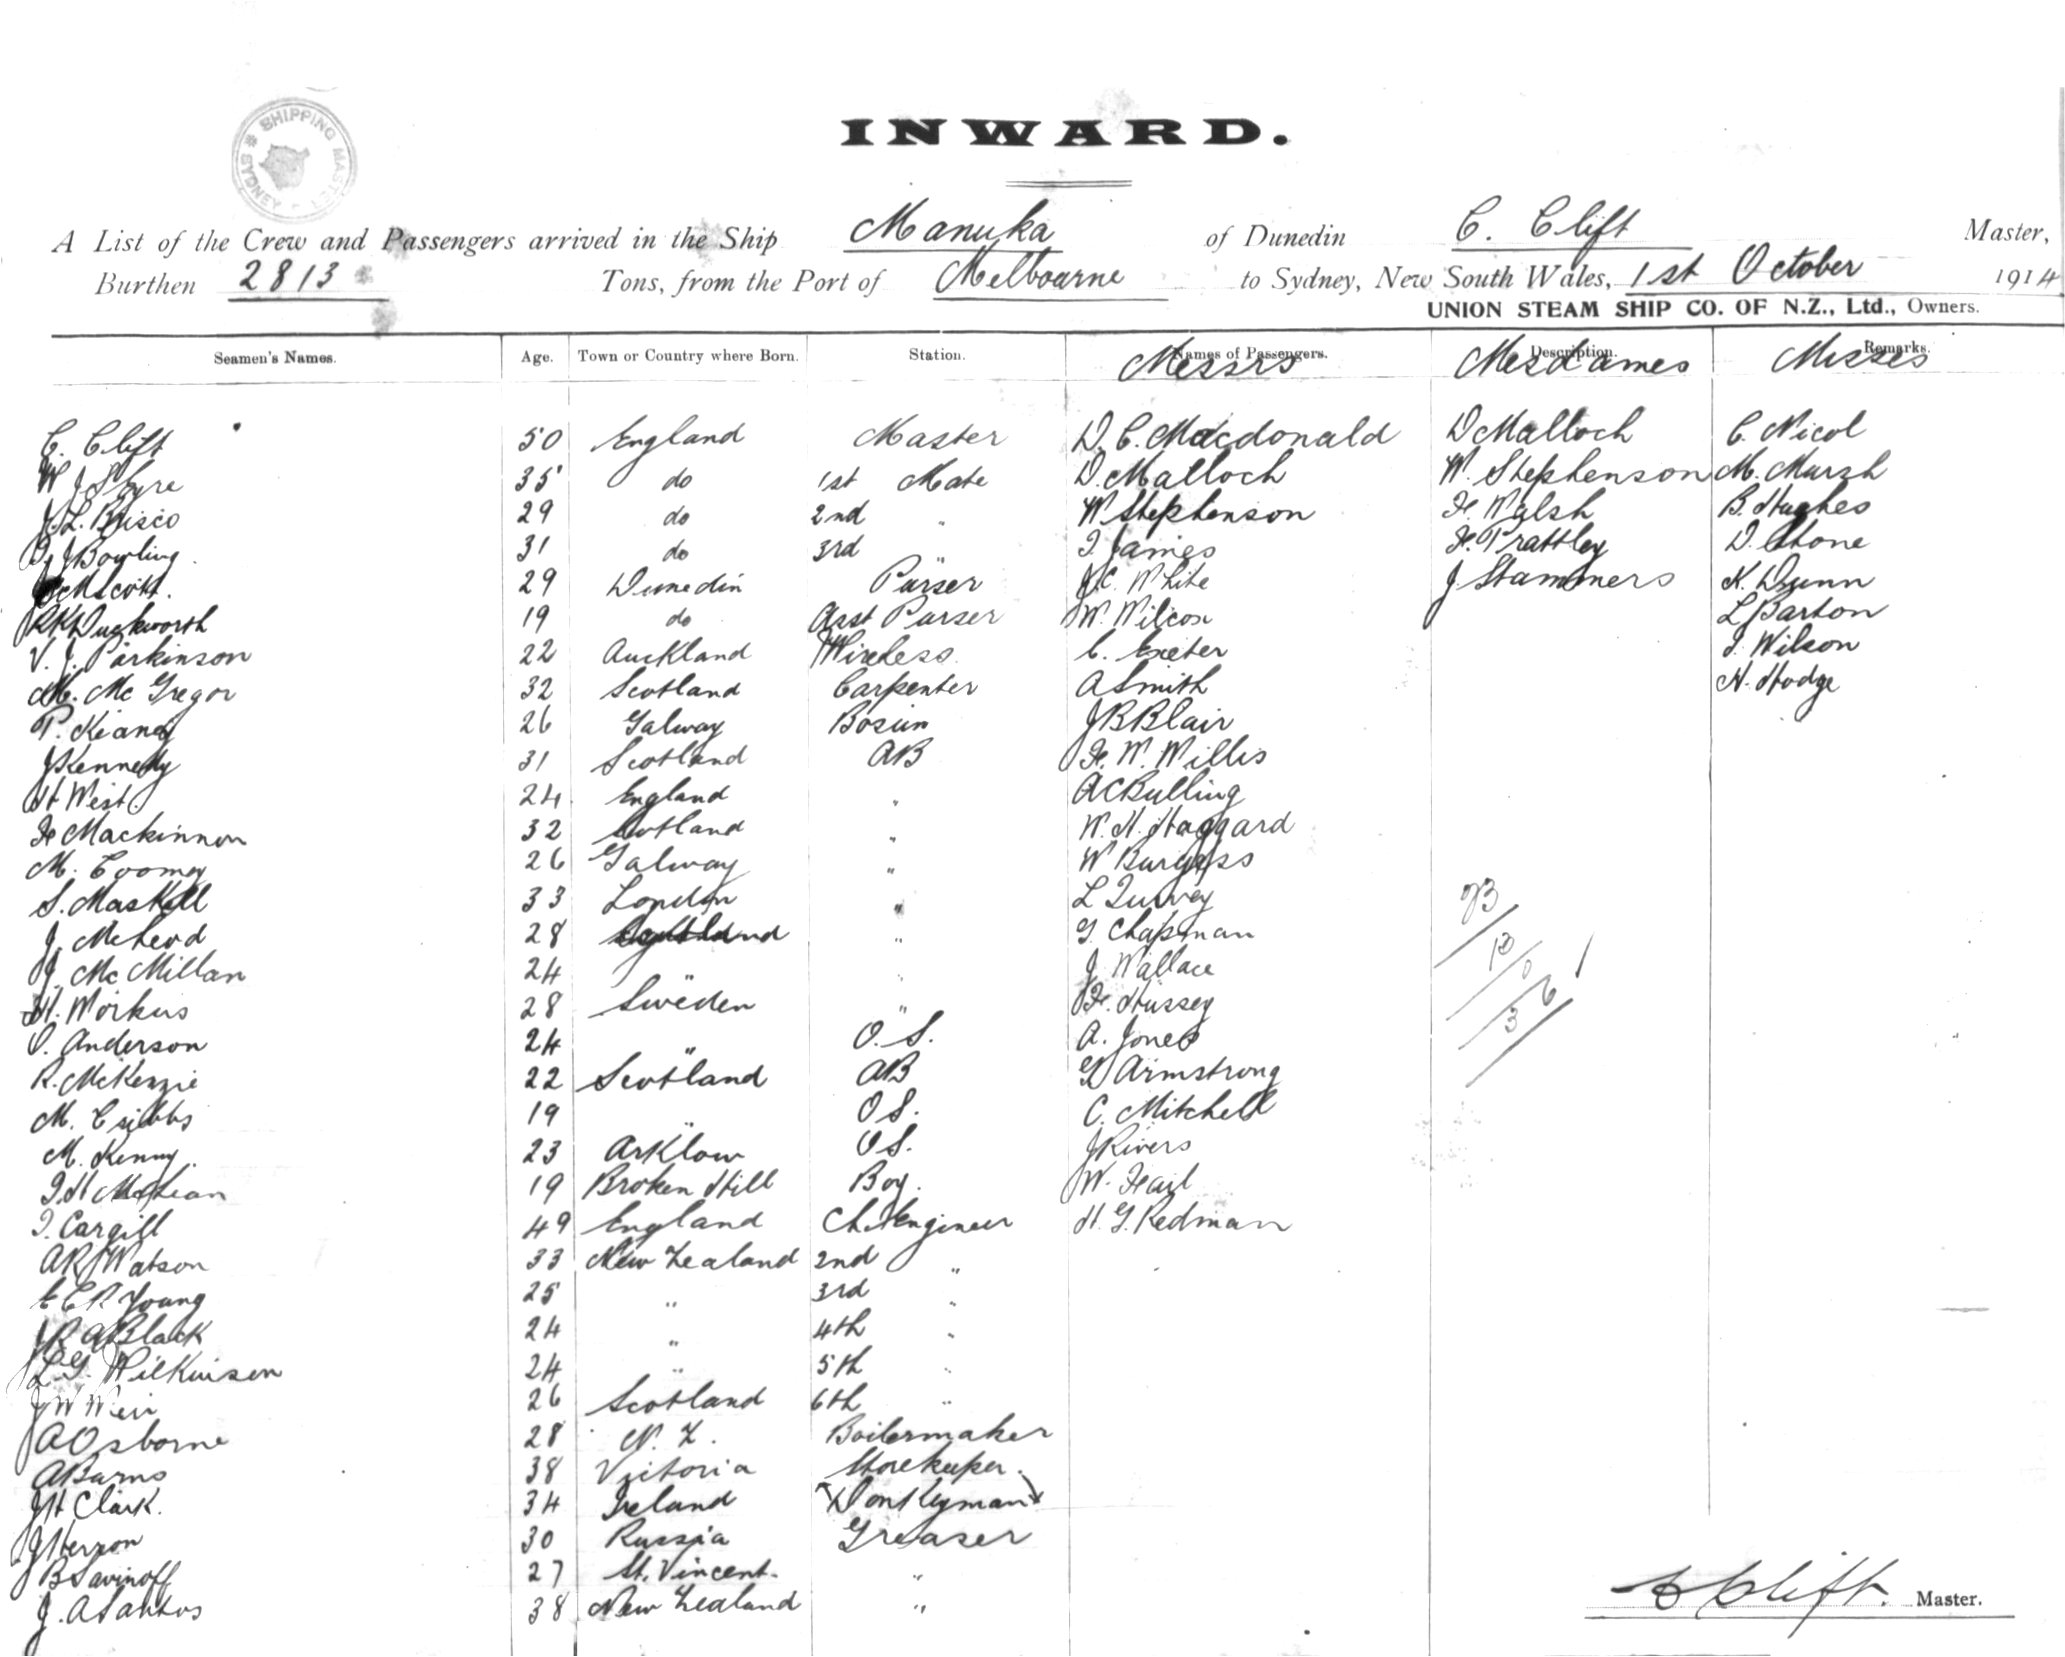 SHIPPING MASTER SYDNEY
INWARD.
A List of the Crew and Passengers arrived in the Ship Manuka of Dunedin C. Clift Master,
Burthen 2813 Tons, from the Port of Melbourne to Sydney, New South Wales, 1st October 1914
UNION STEAM SHIP CO. OF N.Z., Ltd., Owners.
Seamen's Names. Age. Town or Country where Born. Station. Names of Passengers. Description. Remarks.
Messrs Mesdames Misses
C. Clift 50 England Master D. C. Macdonald D Malloch C. Nicol
W J 35 do 1st Mate D. Malloch W. Stephenson M. Marsh
J. L. Brisco 29 do 2nd " W Stephenson F. Walsh B. Hughes
Bowling 31 do 3rd " T James F. Prattley D. Stone
Scott. 29 Dunedin Purser J. C. White J Stammers K. Dunn
R K Duckworth 19 do Asst Purser W. Wilcox L Barton
V. J. Parkinson 22 Auckland Wireless C. Exeter T. Wilson
McGregor 32 Scotland Carpenter A Smith N. Hodge
P. 26 Galway Bosun J B Blair
J Kennedy 31 Scotland AB F. W. Willis
H West 24 England " A C Bulling
F Mackinnon 32 Scotland " W. H. Haggard
M. Coomey 26 Galway " W Burgess
S. Maskell 33 London " L
J. McLeod 28 Scotland " G. Chapman
J. McMillan 24 " " J Wallace
H. Morkus 28 Sweden " F. Hussey
O. Anderson 24 " O. S. A. Jones
R. McKenzie 22 Scotland AB G Armstrong
M. Cribbs 19 " O S. C. Mitchell
M. Kenny. 23 Arklow O S. J Rivers
McLean 19 Broken Hill Boy. W.
T. Cargill 49 England Ch. Engineer H. G. Redman
A R Watson 33 New Zealand 2nd "
E C R Young 25 " 3rd "
J R A Black 24 " 4th "
L G Wilkinson 24 " 5th "
J W Weir 26 Scotland 6th "
A Osborne 28 N. Z. Boilermaker
A Burns 38 Victoria Storekeeper.
J H Clark. 34 Ireland Donkeyman
J Herron 30 Russia Greaser
B Savinoff 27 St. Vincent. "
J. A Santos 38 New Zealand "
C Clift. Master.